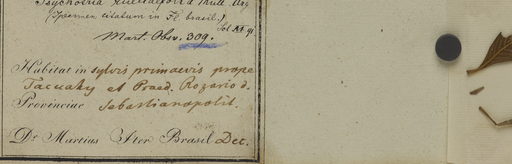 Psychotria nuculaefolia Müll. Arg
(Specimen citatum in Fl. brasil.)
Mart. Obsv. 309.
Habitat in sylvis primaevis prope
Taccahy et Praed. Rozario d.
Provinciae Sebastianopolit.
Dr Martius Iter Brasil Dec.